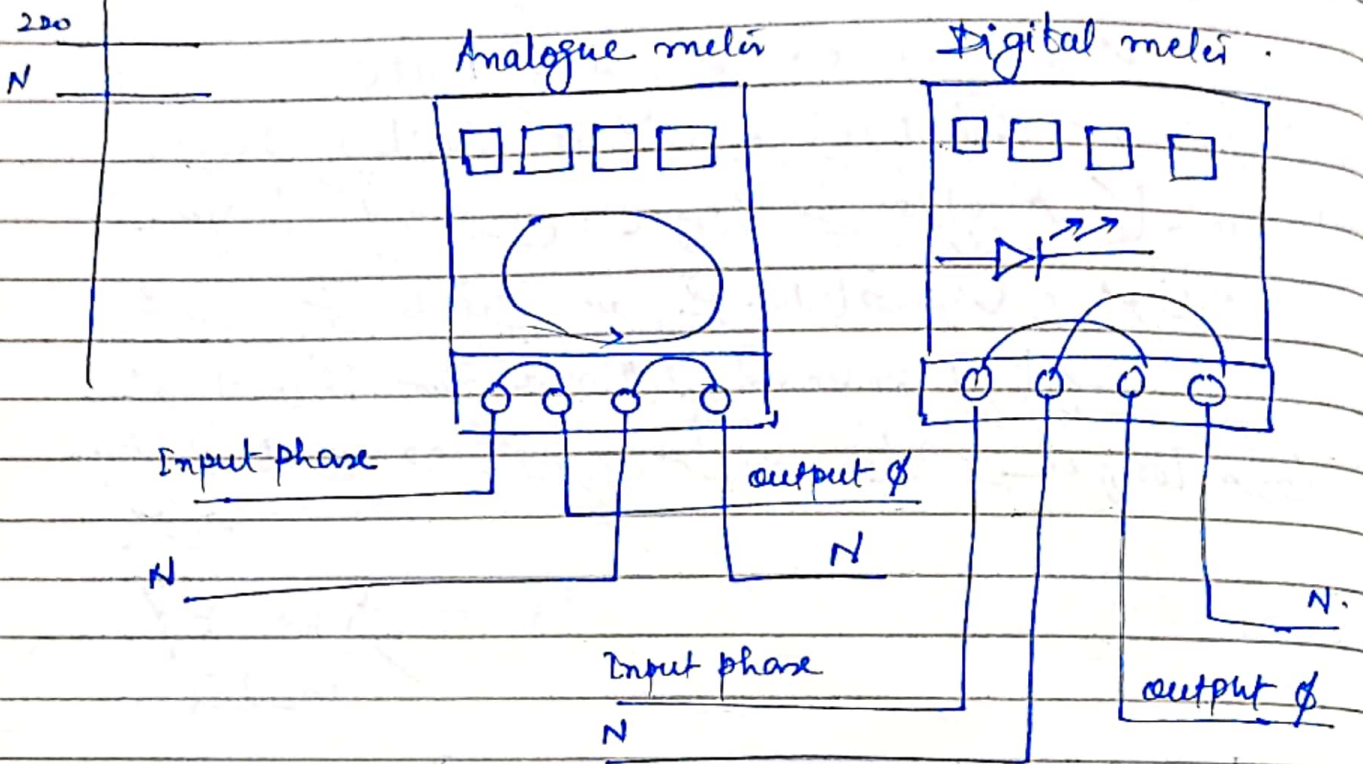 220
N
Analogue meter
Digital meter.
Input phase
output ϕ
N
N
N.
Input phase
output ϕ
N